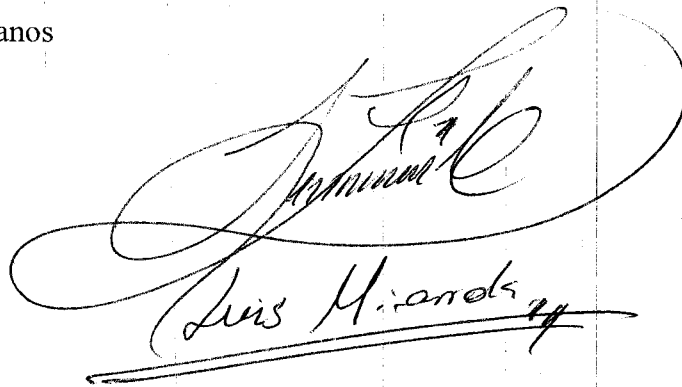 anos
Luis Miranda